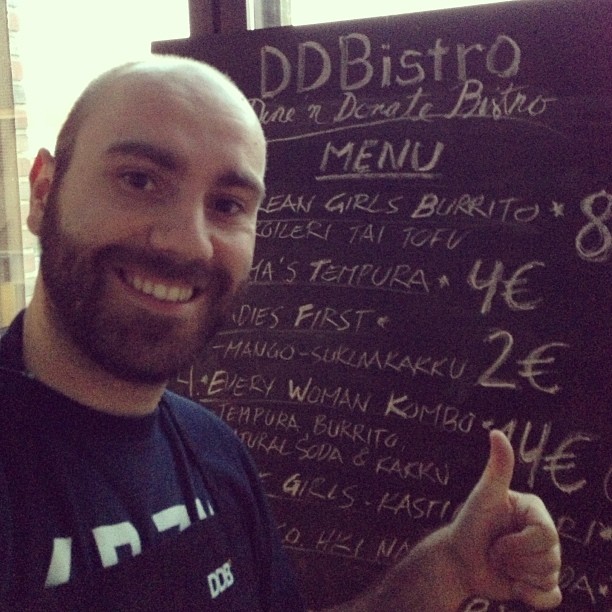 DDBistro
Dine 'n Donate Bistro
MENU
EAN GIRLS BURRITO * 8
GILERI TAI TOFU
MA'S TEMPURA * 4€
DIES FIRST *
-MANGO-SUKLAAKAKKU 2€
4. EVERY WOMAN KOMBO * 14€
TEMPURA BURRITO,
TURAL SODA & KAKKU
GIRLS - KASTI RI *
O HKI NA DA *
DDB